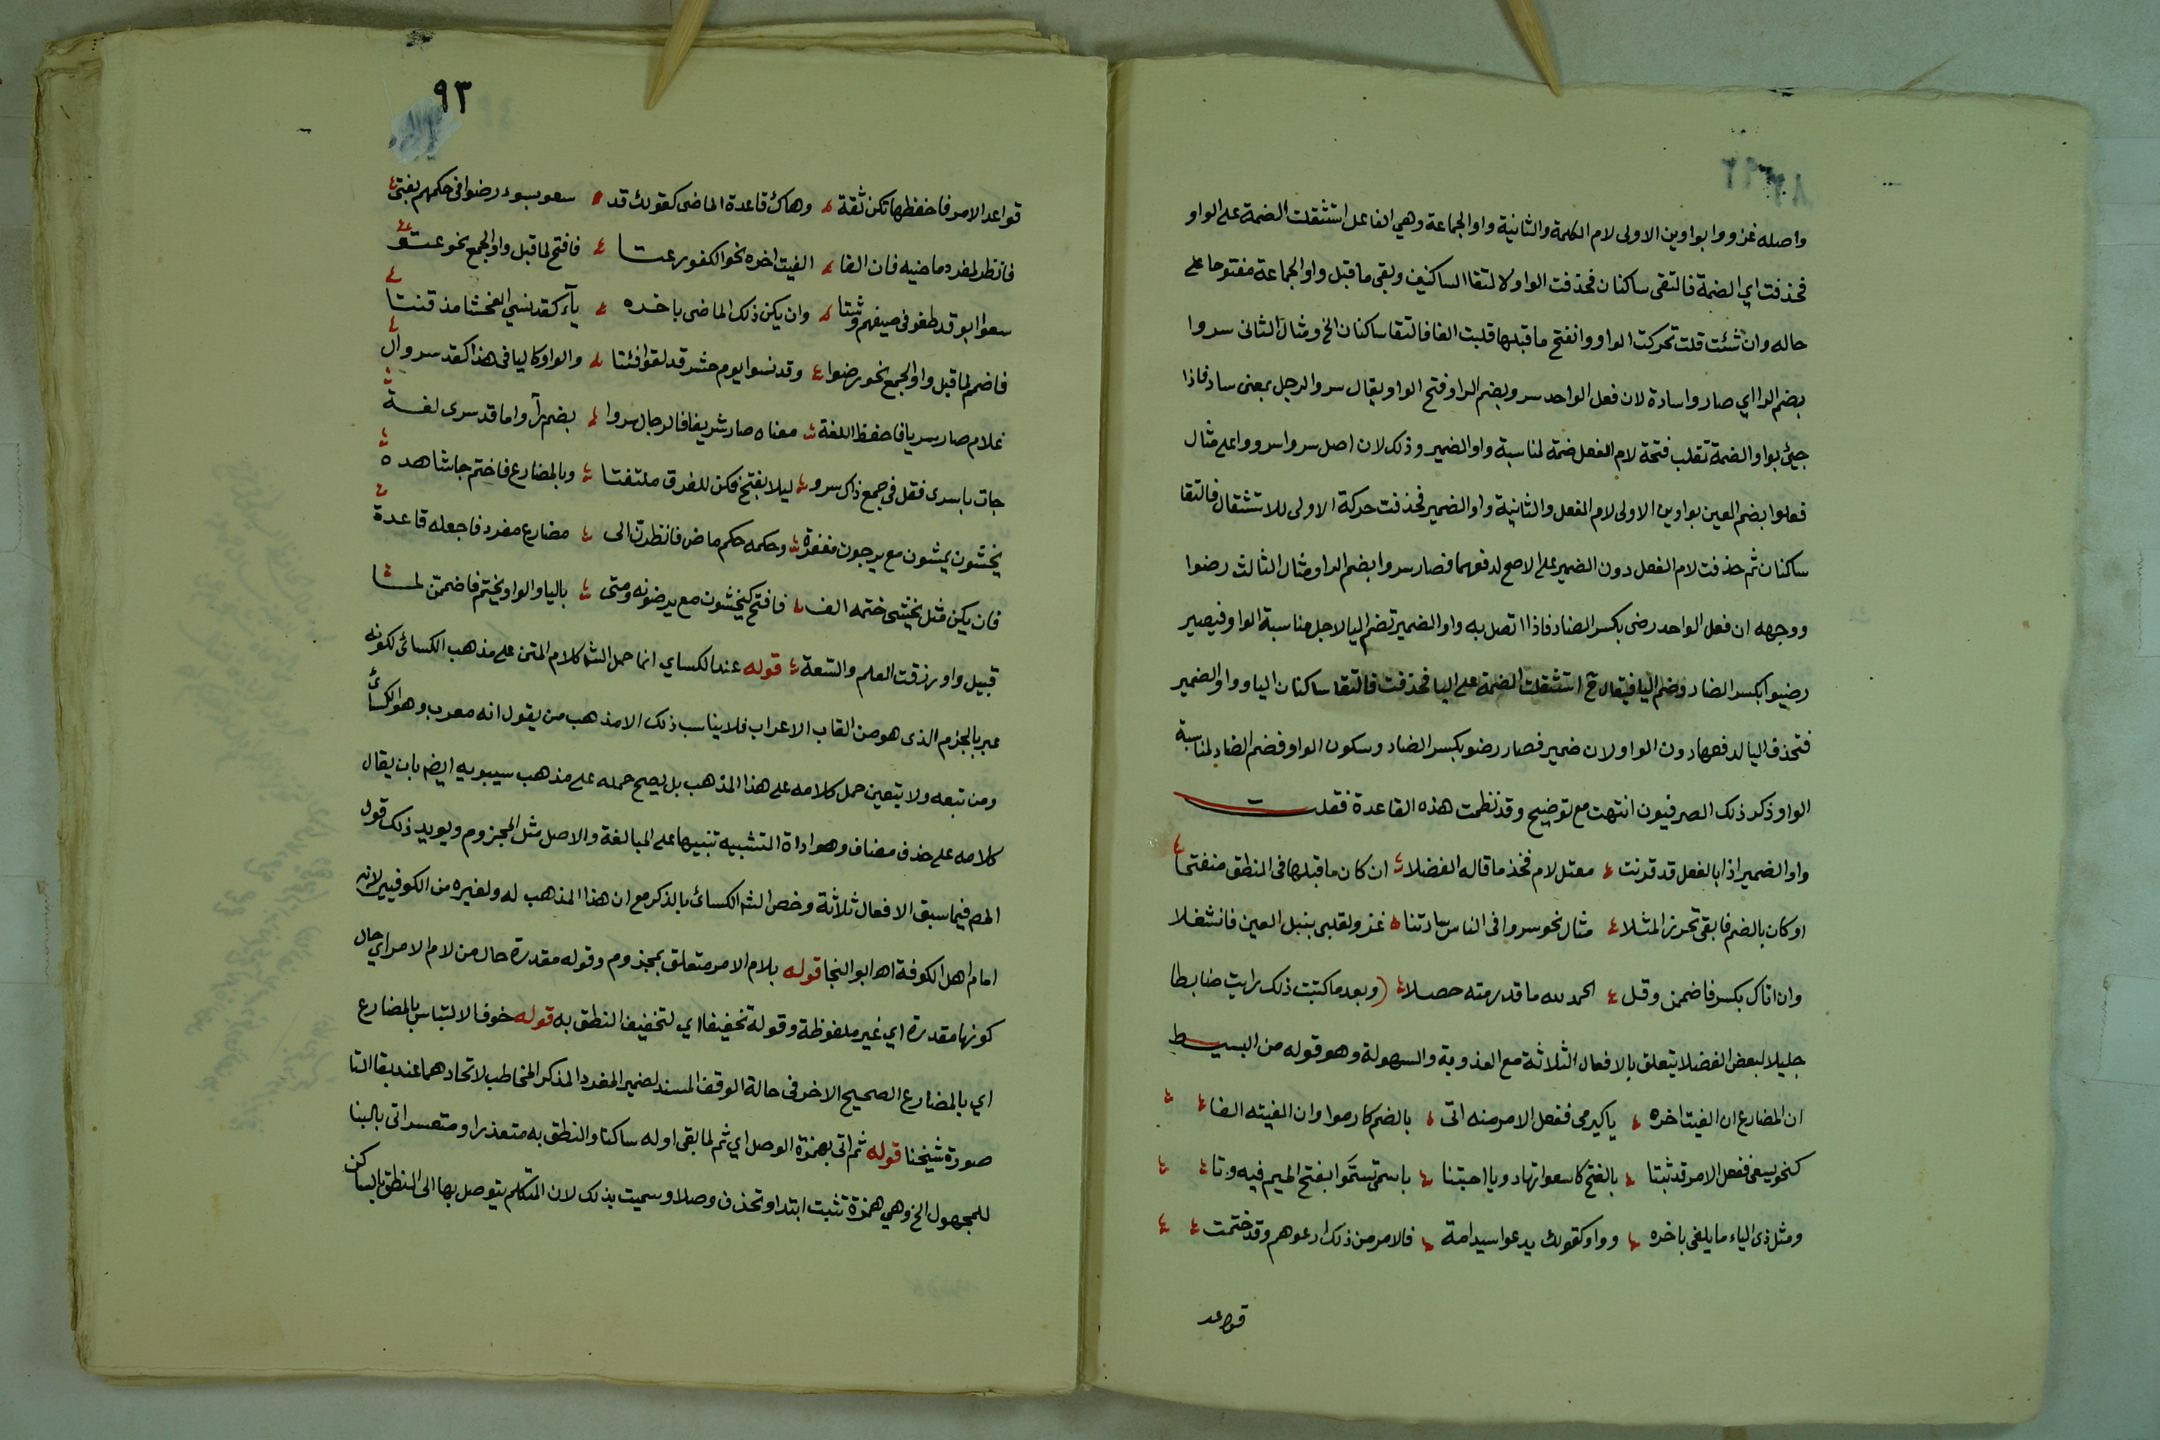 واصله غزووا بواوين الاولى لام الكلمة والثانية واو الجماعة وهي الفاعل استثقلت الضمة على الواو
فحذفت اي الضمة فالتقى ساكنان فحذفت الواو لالتقا الساكنين وبقى ما قبل واو الجماعة مفتوحا على
حاله وان شئت قلت تحركت الواو وانفتح ما قبلها قلبت الفا فالتقا ساكنان الخ ومثال الثانى سروا
بضم الرا اي صاروا سادة لان فعل الواحد سرو بضم الرا وفتح الواو يقال سرو الرجل بمعنى ساد فاذا
جيئ بواو الضمة تقلب فتحة لام الفعل ضمة لمناسبة واو الضمير وذلك لان اصل سروا سرووا على مثال
فعلوا بضم العين بواوين الاولى لام الفعل والثانية واو الضمير فحذفت حركة الاولى للاستثقال فالتقا
ساكنان ثم حذفت لام الفعل دون الضمير على الاصح لدفعهما فصار سروا بضم الرا ومثال الثالث رضوا
ووجهه ان فعل الواحد رضى بكسر الضاد فاذا اتصل به واو الضمير تضم اليا لاجل مناسبة الواو فيصير
رضيوا بكسر الضاد وضم اليا فيقال ح استثقلت الضمة على اليا فحذفت فالتقا ساكنان اليا وواو الضمير
فتحذف اليا لدفعها دون الواو لان ضمير فصار رضو بكسر الضاد وسكون الواو فضم الضاد لمناسبة
الواو ذكر ذلك الصرفيون انتهت مع توضيح وقد نظمت هذه القاعدة فقلت
واو الضمير اذا بالفعل قد قرنت معتل لام فخذ ما قاله الفضلا ان كان ما قبلها فى المنطق منفتحا
او كان بالضم فابقى تحوز المثلا مثال نحو سروا فى الناس سادتنا غزو لقلبى بنبل العين فانشغلا
وان اتاك بكسر فاضممن وقل الحمد لله ما قد رمته حصلا (وبعد ما كتبت ذلك رايت ضابطا
جليلا لبعض الفضلا يتعلق بالافعال الثلاثة مع العذوبة والسهولة وهو قوله من البسيط
ان المضارع ان الفيت اخره يا كيرمى ففعل الامر منه اتى بالضم كارموا وان الفيته الفا
كنحو يسعى ففعل الامر قد ثبتا بالفتح كاسعوا نهادو يا احبتنا باسمى تسموا بفتح الميم فيه وتا
ومثل ذى الياء ما يلفى باخره وواو كقولك يدعوا سيد امة فالامر من ذلك ادعوهم وقد ختمت
قواعد
٩٣
قواعد الامر فاحفظها تكن ثقة وهاك قاعدة الماضى كقولك قد سعو بسود رضوا فى حكمهم بفتى
فانظر لمفرد ماضيه فان الفا الفيت اخره نحو الكفور عتا فافتح لما قبل واو الجمع نحو عتو
سعوا ابو قد طغو فى صيفهم وشتا وان يكن ذلك الماضى باخره يآء كقد نسي الفحشا مذ قنتا
فاضم لما قبل واو الجمع نحو رضوا وقد نسوا يوم حشر قد لقوا فئتا والواو كاليا فى هذا كقد سروال
غلام صار سريا فاحفظ اللغة معناه صار شريفا فالرجال سروا بضم رآ واما قد سرى لغة
جات باسرى فقل فى جمع ذاك سرو ليلا بفتح فكن للفرق ملتفتا وبالمضارع فاختم جا شاهده
يخشون يمشون مع يرجون مغفرة وحكمه حكم ماض فانظرن الى مضارع مفرد فاجعله قاعدة
فان يكن مثل يخشى ختمه الف فافتح كيخشون مع يرضونه ومتى باليا والواو يختم فاضممن لما
قبيل واو رزقت العلم والسعة قوله عند الكساي انما حمل الشا كلام المتن على مذهب الكسائى لكونه
عبر بالجزم الذى هو من القاب الاعراب فلا يناسب ذلك الا مذهب من يقول انه معرب وهو الكسائ
ومن تبعه ولا يتعين حمل كلامه على هذا المذهب بل يصح حمله على مذهب سيبويه ايضم بان يقال
كلامه على حذف مضاف وهو اداة التشبيه تنبيها على المبالغة والاصل مثل المجزوم ويويد ذلك قول
المص فيما سبق الافعال ثلاثة وخص الشه الكسائ بالذكر مع ان هذا المذهب له ولغيره من الكوفيين لانه
امام اهل الكوفة اه ابو النجا قوله بلام الامر متعلق بمجذوم وقوله مقدرة حال من لام الامر اي حال
كونها مقدرة اي غير ملفوظة وقوله تخفيفا اي لتخفيف النطق به قوله خوف الالتباس بالمضارع
اي بالمضارع الصحيح الاخر فى حالة الوقف المسند لضمير المفرد المذكر المخاطب لاتحادهما عند بقا التا
صورة شيخنا قوله ثم اتى بهمزة الوصل اي ثم لما بقى اوله ساكنا والنطق به متعذرا ومتعسر اتى بالبنا
للمجهول الخ وهي همزة تثبت ابتدا وتحذف وصلا وسميت بذلك لان المتكلم يتوصل بها الى النطق بالساكن